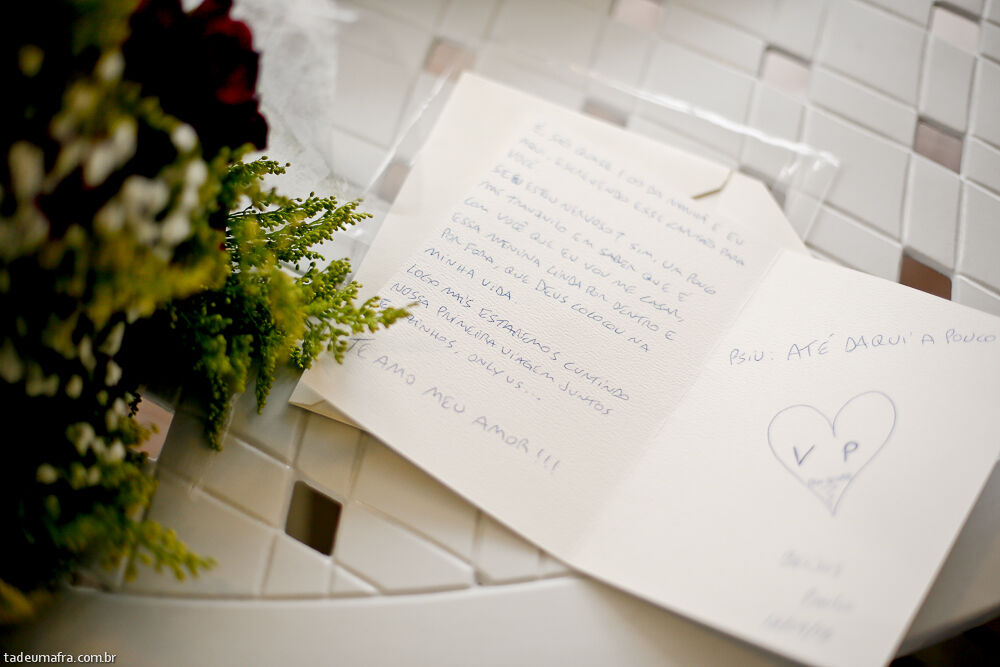 E SÃO QUASE 1:00 DA MANHÃ E EU
AQUI, ESCREVENDO ESSE CARTÃO PARA
VOCÊ.
SE EU ESTOU NERVOSO? SIM, UM POUCO
MAS TRANQUILO EM SABER QUE É
COM VOCÊ QUE EU VOU ME CASAR,
ESSA MENINA LINDA POR DENTRO E
POR FORA, QUE DEUS COLOCOU NA
MINHA VIDA
LOGO MAIS ESTAREMOS CURTINDO
NOSSA PRIMEIRA VIAGEM JUNTOS
ZINHOS, ONLY US...
TE AMO MEU AMOR!!!
PSIU: ATÉ DAQUI A POUCO
V P
tadeumafra.com.br